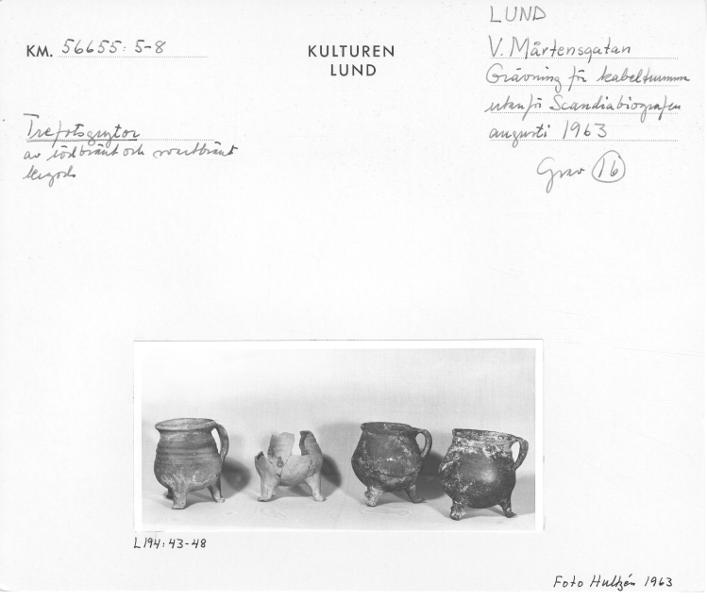 LUND
KM. 56655: 5-8
KULTUREN
LUND
V. Mårtensgatan
Grävning för kabeltrumma
utanför Scandiabiografen
augusti 1963
Grav 16
Trefotsgrytor
av rödbränt och svartbränt
lergods
L194: 43-48
Foto Hultzén 1963